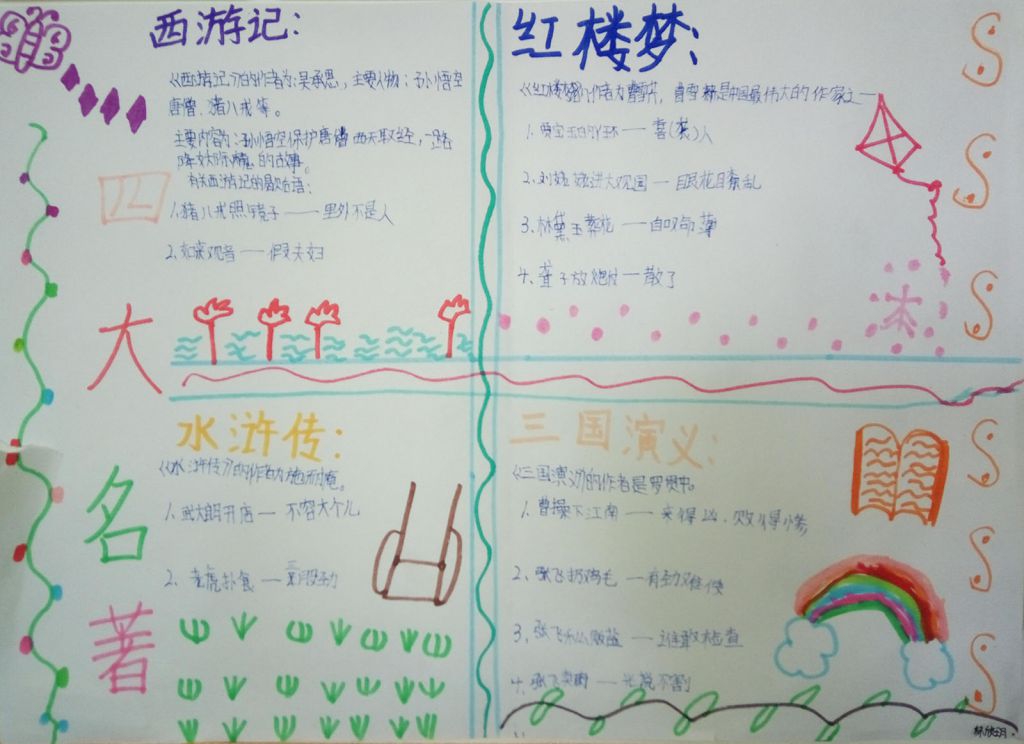 四
大
名
著
西游记:
《西游记》的作者为:吴承恩,主要人物:孙悟空
唐僧、猪八戒等。
主要内容为:孙悟空保护唐僧西天取经,一路
降妖除魔的故事。
有关西游记的歇后语:
1.猪八戒照镜子——里外不是人
2.如来观音——假夫妇
红楼梦:
《红楼梦》作者为曹雪芹,曹雪芹是中国最伟大的作家之一
1.贾宝玉的——喜(爱)人
2.刘姥姥进大观园——眼花目紊乱
3.林黛玉葬花——自叹命薄
4.聋子放炮仗——散了
水浒传:
《水浒传》的作者为施耐庵。
1.武大郎开店——不容大个儿
2.老虎扑食——三股劲
三国演义:
《三国演义》的作者是罗贯中。
1.曹操下江南——来得凶,败得惨
2.张飞扔鸡毛——有劲难使
3.张飞贩盐——谁敢检查
4.张飞卖肉——光说不割
本